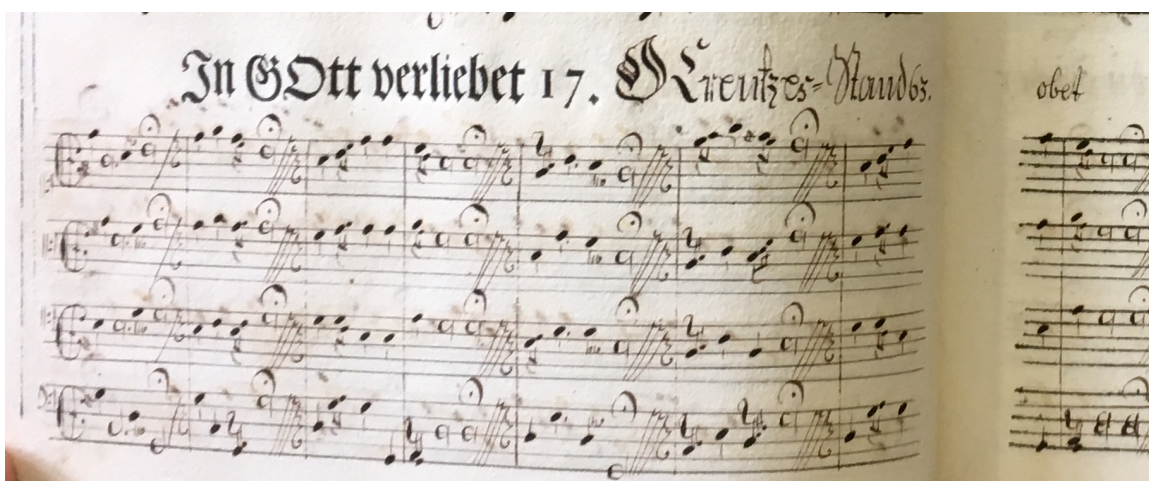 In GOtt verliebet 17. O Creutzes-Stand 63.
obet